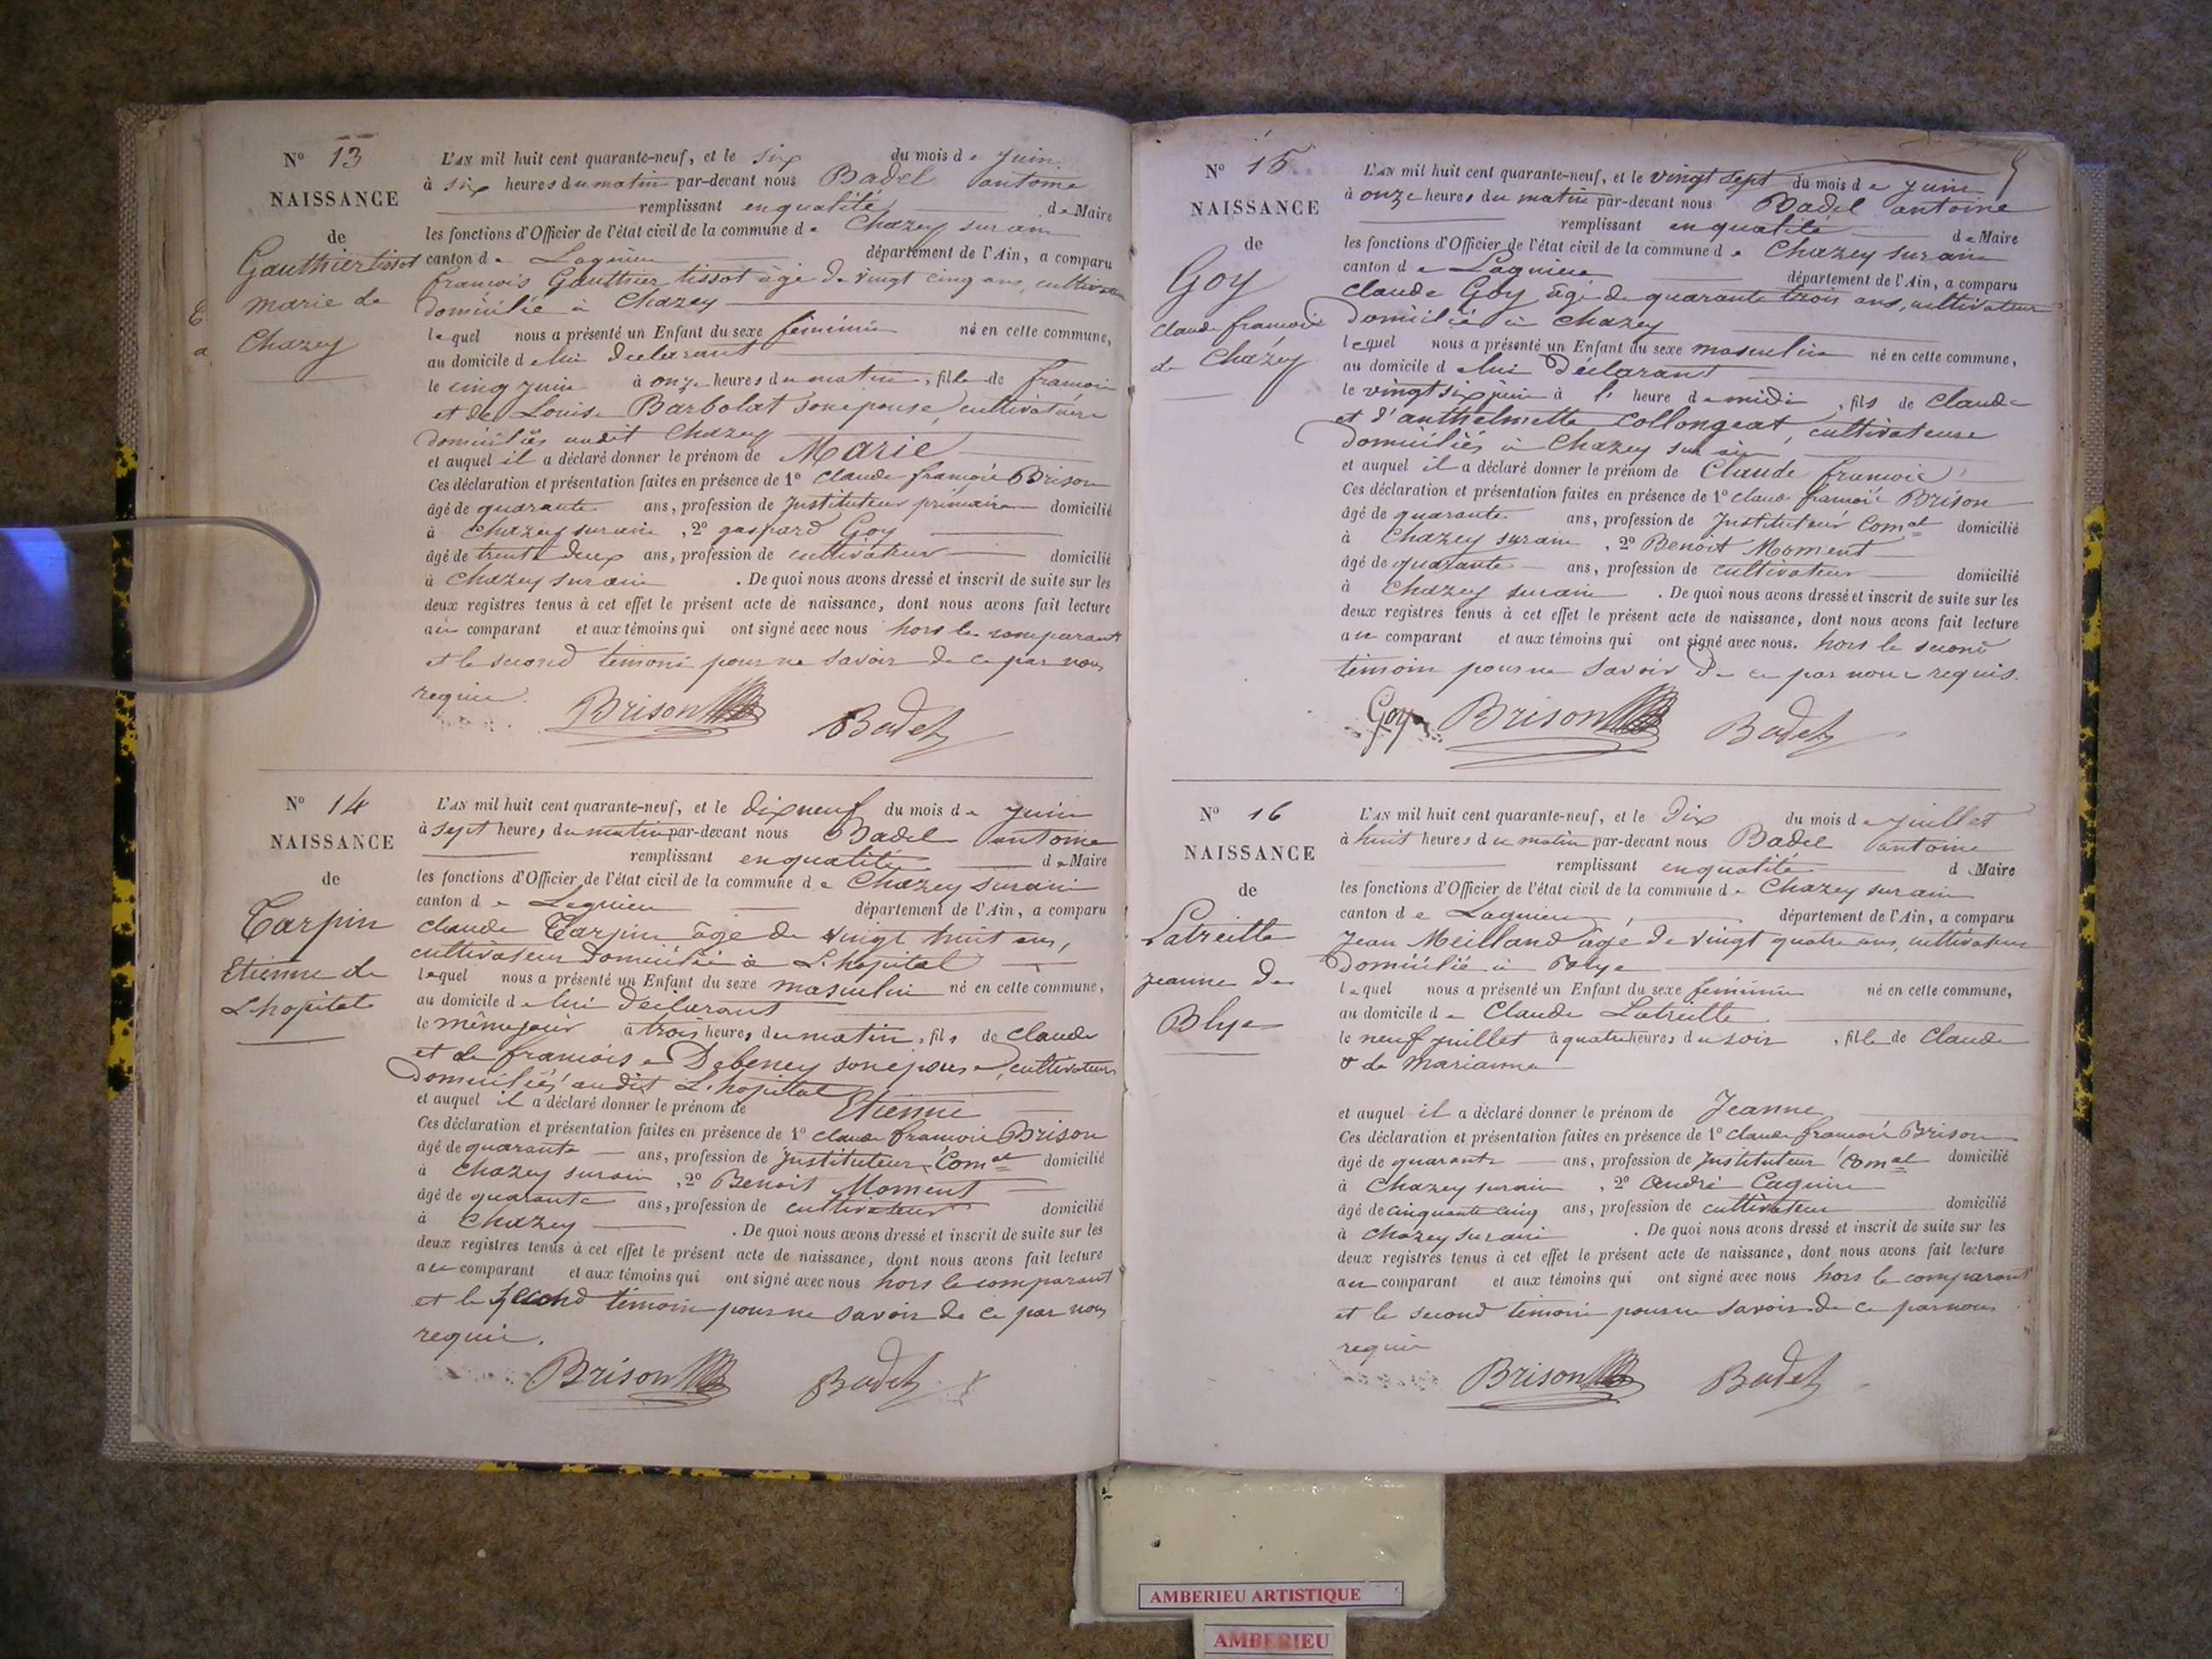 N° 13
NAISSANCE
de
Gauthier tissot
marie de
Chazey
L'AN mil huit cent quarante-neuf, et le six du mois de juin
à six heures du matin par-devant nous Badel antoine
remplissant en qualité de Maire
les fonctions d'Officier de l'état civil de la commune de Chazey sur ain
canton de Lagnieu département de l'Ain, a comparu
francois Gauthier tissot âgé de vingt cinq ans, cultivateur
domicilié à Chazey
lequel nous a présenté un Enfant du sexe féminin né en cette commune,
au domicile de lui déclarant
le cinq juin à onze heures du matin, fille de francois
et de Louise Barbolat son epouse, cultivateurs
domiciliés audit Chazey
et auquel il a déclaré donner le prénom de Marie
Ces déclaration et présentation faites en présence de 1° Claude françois Brison
âgé de quarante ans, profession de Instituteur primaire domicilié
à Chazey sur ain, 2° gaspard Goy
âgé de trente deux ans, profession de cultivateur domicilié
à Chazey sur ain. De quoi nous avons dressé et inscrit de suite sur les
deux registres tenus à cet effet le présent acte de naissance, dont nous avons fait lecture
au comparant et aux témoins qui ont signé avec nous hors le comparant
et le second témoin pour ne savoir de ce par nous
requis.
Brison Badel
N° 14
NAISSANCE
de
Tarpin
Etienne de
L'hopital
L'AN mil huit cent quarante-neuf, et le dix neuf du mois de juin
à sept heures du matin par-devant nous Badel antoine
remplissant en qualité de Maire
les fonctions d'Officier de l'état civil de la commune de Chazey sur ain
canton de Lagnieu département de l'Ain, a comparu
claude Tarpin âgé de vingt huit ans,
cultivateur domicilié à L'hopital
lequel nous a présenté un Enfant du sexe masculin né en cette commune,
au domicile de lui déclarant
le même jour à trois heures du matin, fils de claude
et de francoise Debeney son epouse, cultivateurs
domiciliés audit L'hopital
et auquel il a déclaré donner le prénom de Etienne
Ces déclaration et présentation faites en présence de 1° claude francois Brison
âgé de quarante ans, profession de Instituteur Comal domicilié
à Chazey sur ain, 2° Benoit Moment
âgé de quarante ans, profession de cultivateur domicilié
à Chazey. De quoi nous avons dressé et inscrit de suite sur les
deux registres tenus à cet effet le présent acte de naissance, dont nous avons fait lecture
au comparant et aux témoins qui ont signé avec nous hors le comparant
et le second témoin pour ne savoir de ce par nous
requis.
Brison Badel
N° 15
NAISSANCE
de
Goy
claude francois
de Chazey
L'AN mil huit cent quarante-neuf, et le vingt sept du mois de juin
à onze heures du matin par-devant nous Badel antoine
remplissant en qualité de Maire
les fonctions d'Officier de l'état civil de la commune de Chazey sur ain
canton de Lagnieu département de l'Ain, a comparu
claude Goy âgé de quarante trois ans, cultivateur
domicilié à Chazey
lequel nous a présenté un Enfant du sexe masculin né en cette commune,
au domicile de lui déclarant
le vingt six juin à l' heure de midi, fils de claude
et d'anthelmette Collongeat, cultivateurs
domiciliés à Chazey sur ain
et auquel il a déclaré donner le prénom de Claude francois
Ces déclaration et présentation faites en présence de 1° claude francois Brison
âgé de quarante ans, profession de Instituteur Comal domicilié
à Chazey sur ain, 2° Benoit Moment
âgé de quarante ans, profession de cultivateur domicilié
à Chazey sur ain. De quoi nous avons dressé et inscrit de suite sur les
deux registres tenus à cet effet le présent acte de naissance, dont nous avons fait lecture
au comparant et aux témoins qui ont signé avec nous. hors le second
témoin pour ne savoir de ce par nous requis.
Goy Brison Badel
N° 16
NAISSANCE
de
Latreille
jeanne de
Blye
L'AN mil huit cent quarante-neuf, et le dix du mois de juillet
à huit heures du matin par-devant nous Badel antoine
remplissant en qualité d Maire
les fonctions d'Officier de l'état civil de la commune de Chazey sur ain
canton de Lagnieu département de l'Ain, a comparu
jean Meilland âgé de vingt quatre ans, cultivateur
domicilié à Blye
lequel nous a présenté un Enfant du sexe féminin né en cette commune,
au domicile de Claude Latreille
le neuf juillet à quatre heures du soir, fille de Claude
& de Marianne
et auquel il a déclaré donner le prénom de Jeanne
Ces déclaration et présentation faites en présence de 1° claude francois Brison
âgé de quarante ans, profession de Instituteur Comal domicilié
à Chazey sur ain, 2° André Caguin
âgé de cinquante cinq ans, profession de cultivateur domicilié
à Chazey sur ain. De quoi nous avons dressé et inscrit de suite sur les
deux registres tenus à cet effet le présent acte de naissance, dont nous avons fait lecture
au comparant et aux témoins qui ont signé avec nous hors le comparant
et le second témoin pour ne savoir de ce par nous
requis
Brison Badel
AMBERIEU ARTISTIQUE
AMBERIEU